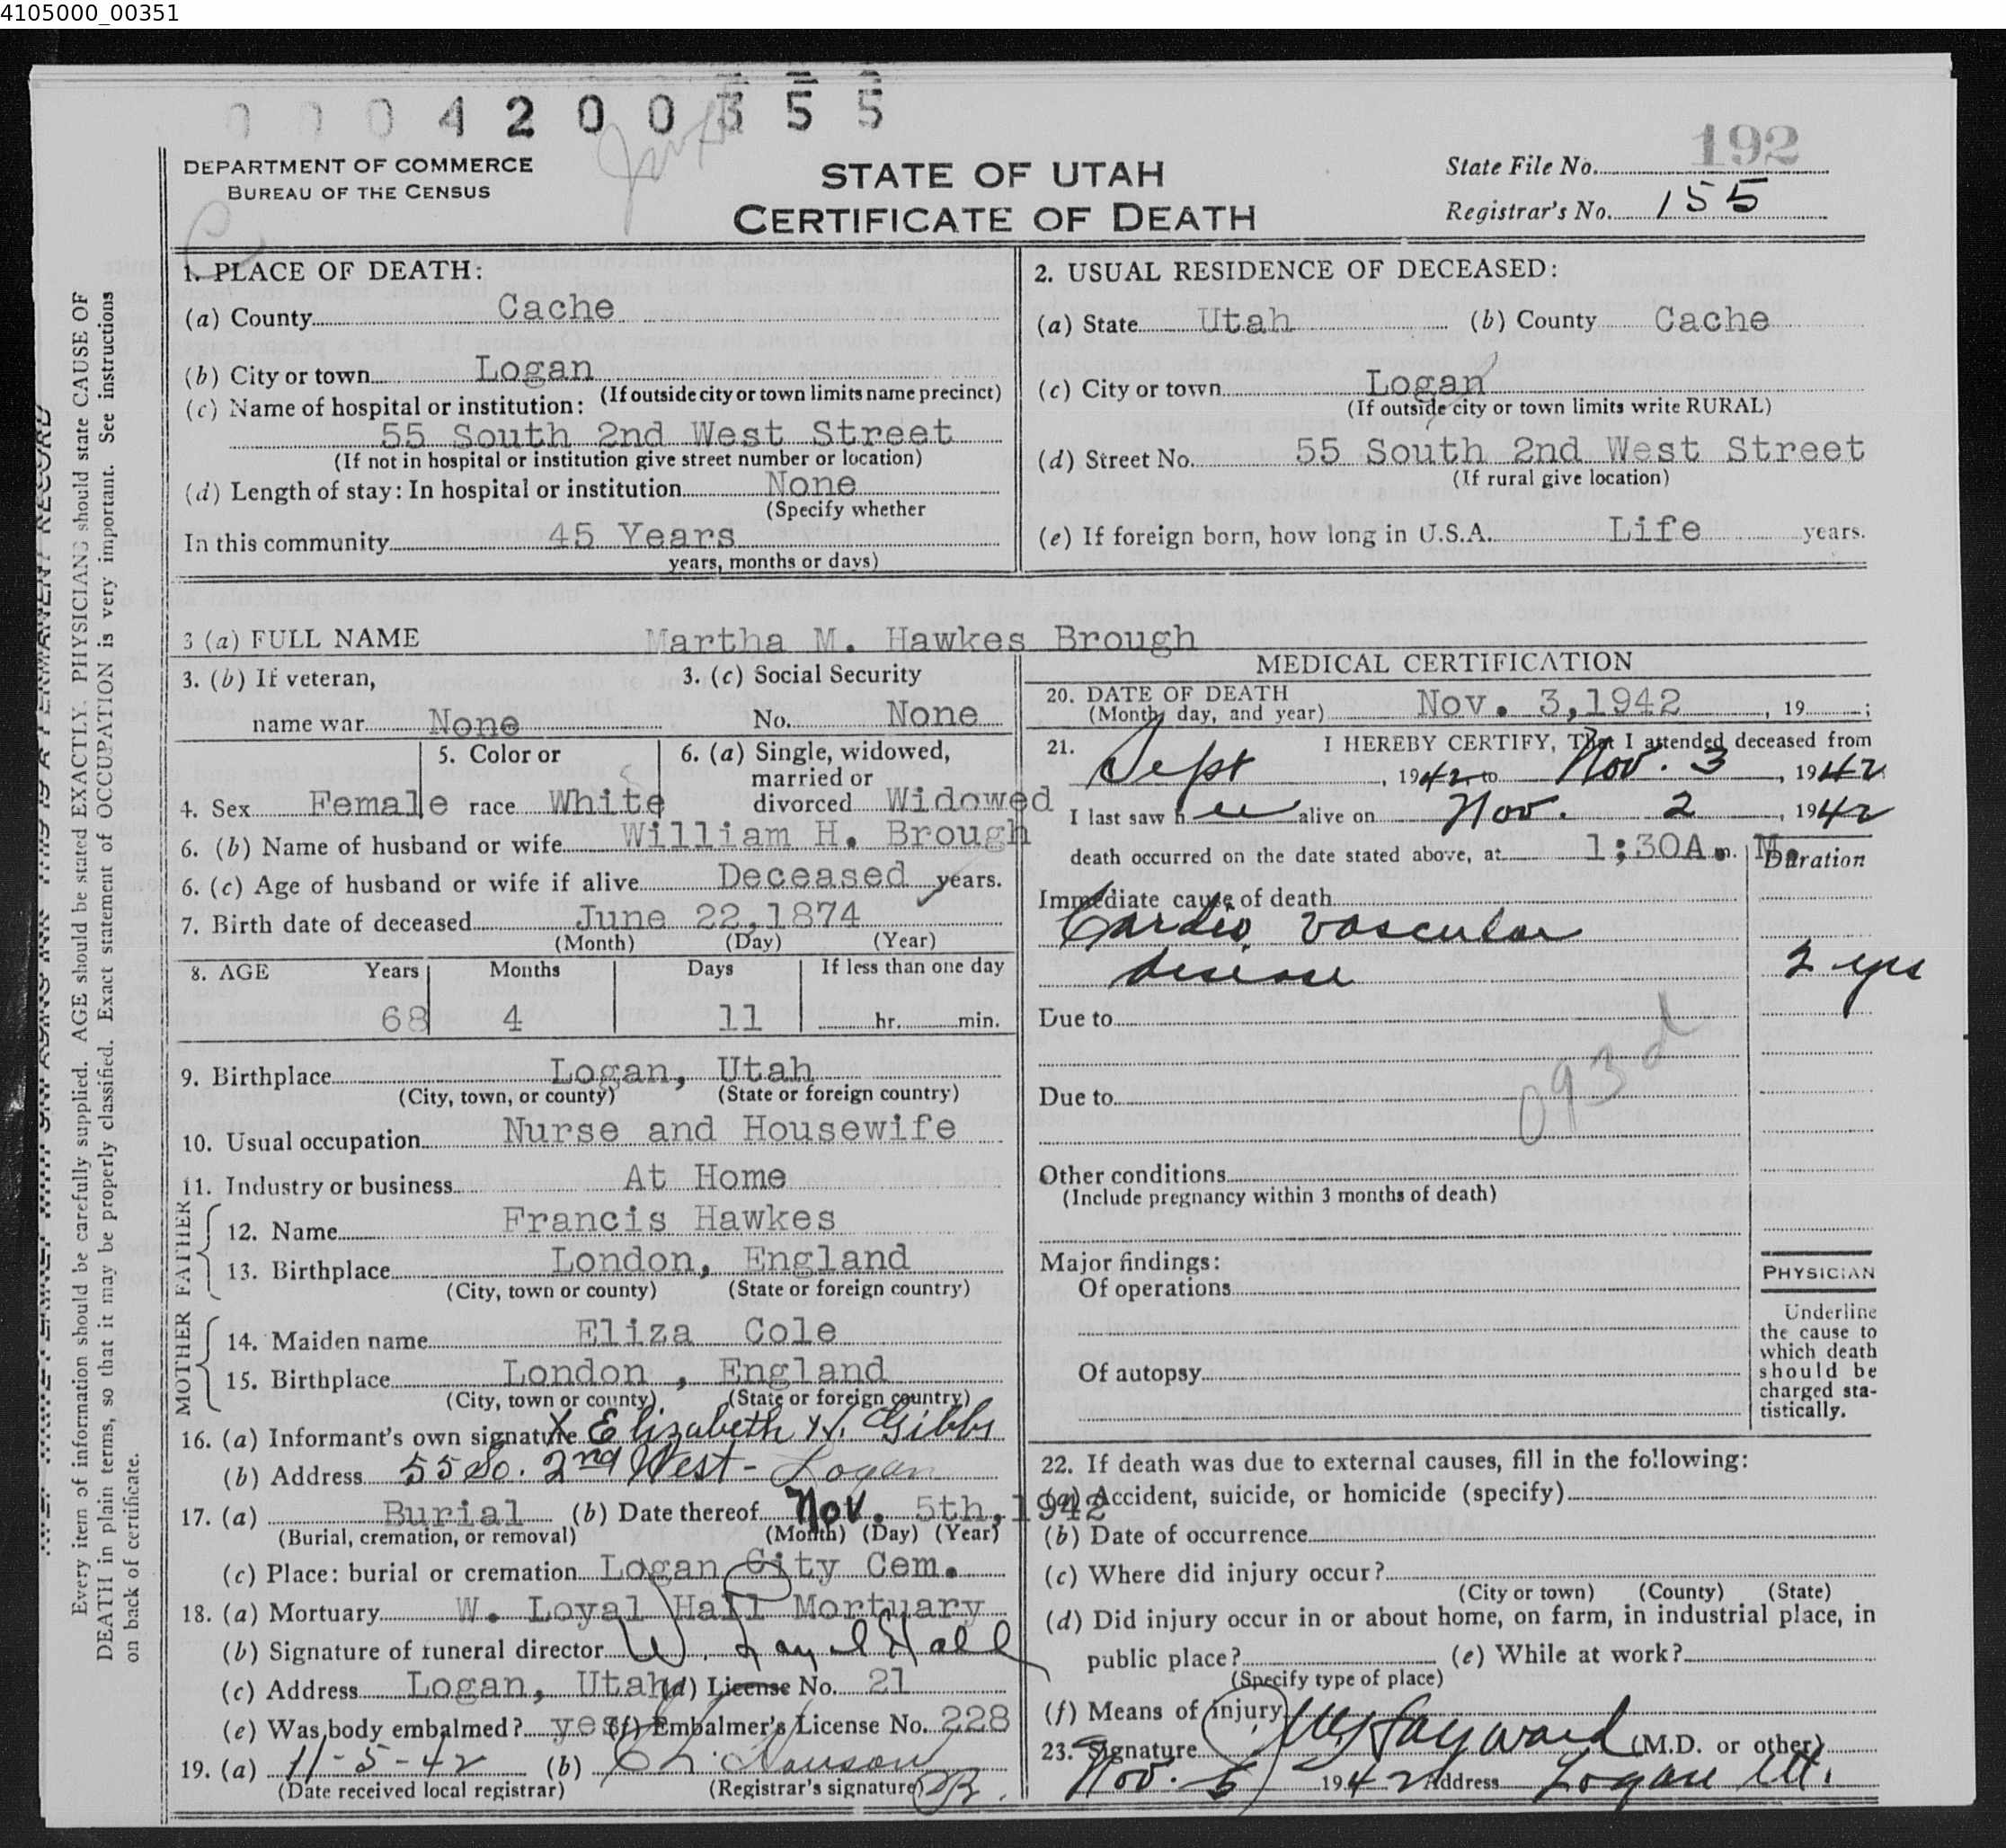 4105000_00351
0 0 0 4 2 0 0 3 5 5
192
DEPARTMENT OF COMMERCE
BUREAU OF THE CENSUS
STATE OF UTAH
CERTIFICATE OF DEATH
State File No.
Registrar's No. 155
1. PLACE OF DEATH:
(a) County Cache
(b) City or town Logan
(If outside city or town limits name precinct)
(c) Name of hospital or institution:
55 South 2nd West Street
(If not in hospital or institution give street number or location)
(d) Length of stay: In hospital or institution None
(Specify whether
In this community 45 Years
years, months or days)
2. USUAL RESIDENCE OF DECEASED:
(a) State Utah (b) County Cache
(c) City or town Logan
(If outside city or town limits write RURAL)
(d) Street No. 55 South 2nd West Street
(If rural give location)
(e) If foreign born, how long in U.S.A. Life years.
3 (a) FULL NAME Martha M. Hawkes Brough
3. (b) If veteran, 3. (c) Social Security
name war None No. None
5. Color or 6. (a) Single, widowed,
married or
4. Sex Female race White divorced Widowed
6. (b) Name of husband or wife William H. Brough
6. (c) Age of husband or wife if alive Deceased years.
7. Birth date of deceased June 22,1874
(Month) (Day) (Year)
8. AGE Years Months Days If less than one day
68 4 11 hr. min.
9. Birthplace Logan, Utah
(City, town, or county) (State or foreign country)
10. Usual occupation Nurse and Housewife
11. Industry or business At Home
FATHER
12. Name Francis Hawkes
13. Birthplace London, England
(City, town or county) (State or foreign country)
MOTHER
14. Maiden name Eliza Cole
15. Birthplace London , England
(City, town or county) (State or foreign country)
16. (a) Informant's own signature X Elizabeth H. Gibbs
(b) Address 55 So. 2nd West - Logan
17. (a) Burial (b) Date thereof Nov. 5th,1942
(Burial, cremation, or removal) (Month) (Day) (Year)
(c) Place: burial or cremation Logan City Cem.
18. (a) Mortuary W. Loyal Hall Mortuary
(b) Signature of funeral director W. Loyal Hall
(c) Address Logan, Utah (d) License No. 21
(e) Was body embalmed? yes (f) Embalmer's License No. 228
19. (a) 11-5-42 (b) Hanson
(Date received local registrar) (Registrar's signature)
MEDICAL CERTIFICATION
20. DATE OF DEATH
(Month, day, and year) Nov. 3,1942, 19 ;
21. I HEREBY CERTIFY, That I attended deceased from
Sept, 1942 to Nov. 3, 1942
I last saw h er alive on Nov. 2, 1942
death occurred on the date stated above, at 1:30A.m. M.
Duration
Immediate cause of death
Cardio vascular
disease 2 yrs
Due to
093d
Due to
Other conditions
(Include pregnancy within 3 months of death)
Major findings:
Of operations
Of autopsy
PHYSICIAN
Underline
the cause to
which death
should be
charged sta-
tistically.
22. If death was due to external causes, fill in the following:
(a) Accident, suicide, or homicide (specify)
(b) Date of occurrence
(c) Where did injury occur?
(City or town) (County) (State)
(d) Did injury occur in or about home, on farm, in industrial place, in
public place? (e) While at work?
(Specify type of place)
(f) Means of injury
23. Signature Hayward (M.D. or other)
Nov. 5 1942 Address Logan Ut.
Every item of information should be carefully supplied. AGE should be stated EXACTLY. PHYSICIANS should state CAUSE OF
DEATH in plain terms, so that it may be properly classified. Exact statement of OCCUPATION is very important. See instructions
on back of certificate.